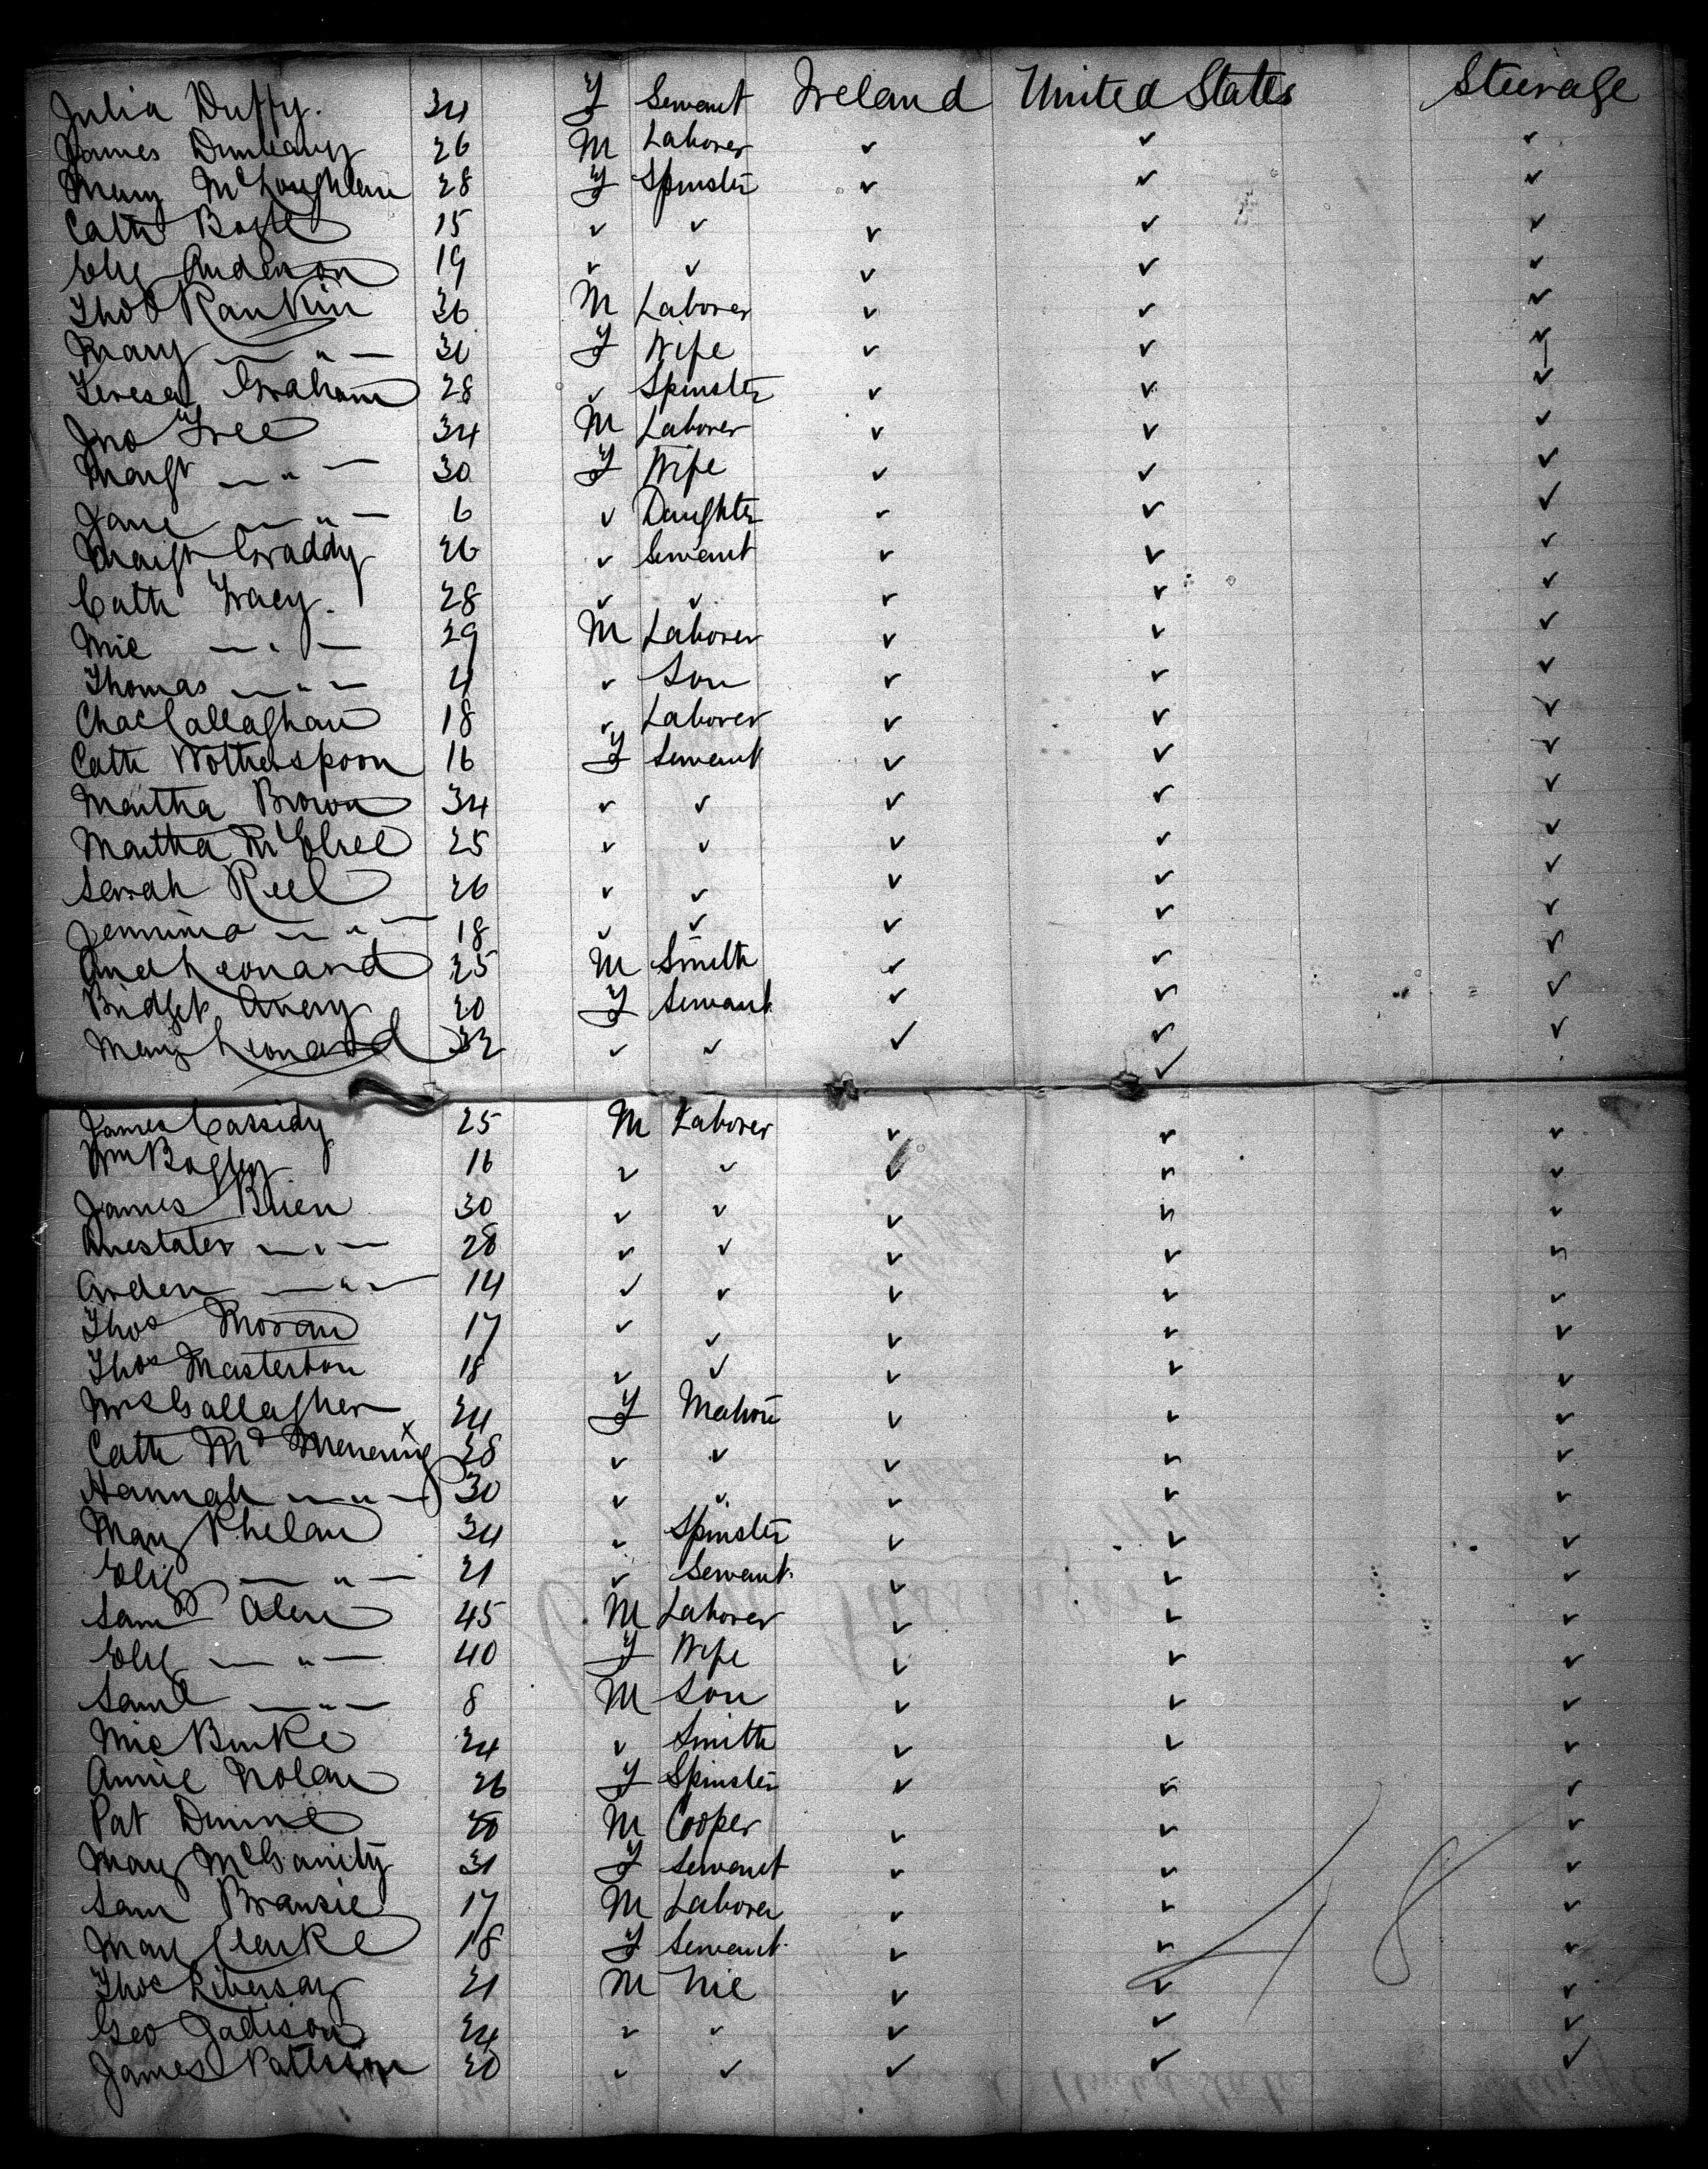 Julia Duffy. 24 F Servant Ireland United States Steerage
James Dunleavy 26 M Laborer ✓ ✓ ✓
Mary McLoughlan 28 F Spinster ✓ ✓ ✓
Cath Bogle 15 ✓ ✓ ✓ ✓ ✓
Eliz Anderson 19 ✓ ✓ ✓ ✓ ✓
Thos Rankin 36 M Laborer ✓ ✓ ✓
Mary — " — 31 F Wife ✓ ✓ ✓
Teresa Graham 28 ✓ Spinster ✓ ✓ ✓
Jno Free 34 M Laborer ✓ ✓ ✓
Margt — " — 30 F Wife ✓ ✓ ✓
Jane — " — 6 ✓ Daughter ✓ ✓ ✓
Margt Graddy 26 ✓ Servant ✓ ✓ ✓
Cath Tracy. 28 ✓ ✓ ✓ ✓ ✓
Mic — " — 29 M Laborer ✓ ✓ ✓
Thomas — " — 4 ✓ Son ✓ ✓ ✓
Chas Callaghan 18 ✓ Laborer ✓ ✓ ✓
Cath Wotherspoon 16 F Servant ✓ ✓ ✓
Martha Brown 34 ✓ ✓ ✓ ✓ ✓
Martha McElree 25 ✓ ✓ ✓ ✓ ✓
Sarah Reel 26 ✓ ✓ ✓ ✓ ✓
Jemmima — " — 18 ✓ ✓ ✓ ✓ ✓
And Leonard 25 M Smith ✓ ✓ ✓
Bridget Avery 20 F Servant ✓ ✓ ✓
Mary Leonard 32 ✓ ✓ ✓ ✓ ✓
James Cassidy 25 M Laborer ✓ ✓ ✓
Wm Bagley 16 ✓ ✓ ✓ ✓ ✓
James Brien 30 ✓ ✓ ✓ ✓ ✓
— " — 28 ✓ ✓ ✓ ✓ ✓
Arden — " — 14 ✓ ✓ ✓ ✓ ✓
Thos Moran 17 ✓ ✓ ✓ ✓ ✓
Thos Masterton 18 ✓ ✓ ✓ ✓ ✓
Mrs Gallagher 24 F Matron ✓ ✓ ✓
Cath McMenemy 28 ✓ ✓ ✓ ✓ ✓
Hannah — " — 30 ✓ ✓ ✓ ✓ ✓
Mary Phelan 24 ✓ Spinster ✓ ✓ ✓
Eliz — " — 21 ✓ Servant ✓ ✓ ✓
Saml Alen 45 M Laborer ✓ ✓ ✓
Eliz — " — 40 F Wife ✓ ✓ ✓
Saml — " — 8 M Son ✓ ✓ ✓
Mic Burke 24 ✓ Smith ✓ ✓ ✓
Annie Nolan 26 F Spinster ✓ ✓ ✓
Pat Dunne 20 M Cooper ✓ ✓ ✓
Mary McGanity 31 F Servant ✓ ✓ ✓
Sam Bransie 17 M Laborer ✓ ✓ ✓
Mary Clarke 18 F Servant ✓ ✓ ✓
Thos 21 M Nil ✓ ✓ ✓
Geo 24 ✓ ✓ ✓ ✓ ✓
James Pattison 20 ✓ ✓ ✓ ✓ ✓
48